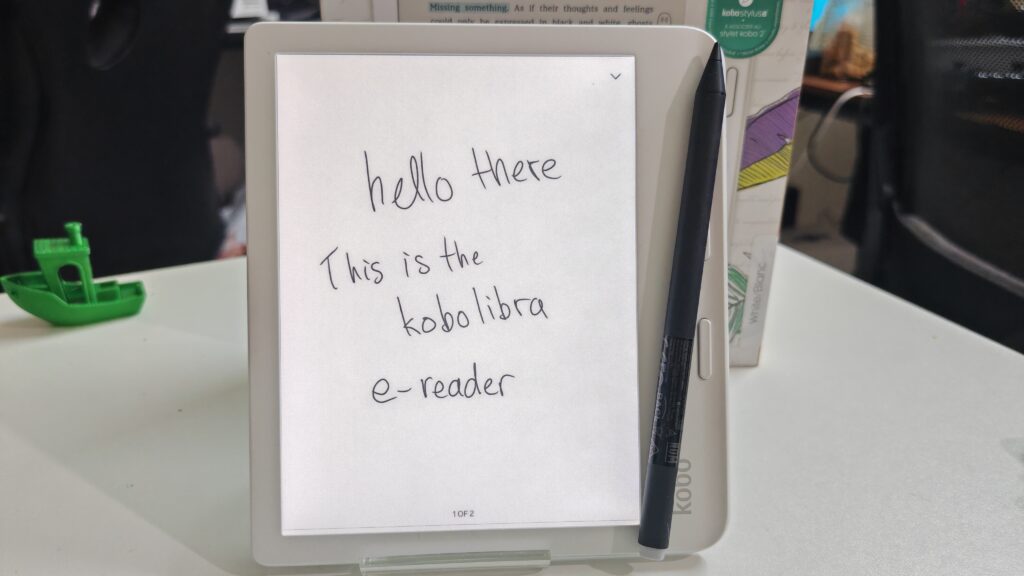 Missing something. As if their thoughts and feelings
could only be expressed in black and white, ghosts
kobo stylus 2
stylet kobo 2
hello there
This is the
kobo libra
e-reader
1 OF 2
kobo
White/Blanc